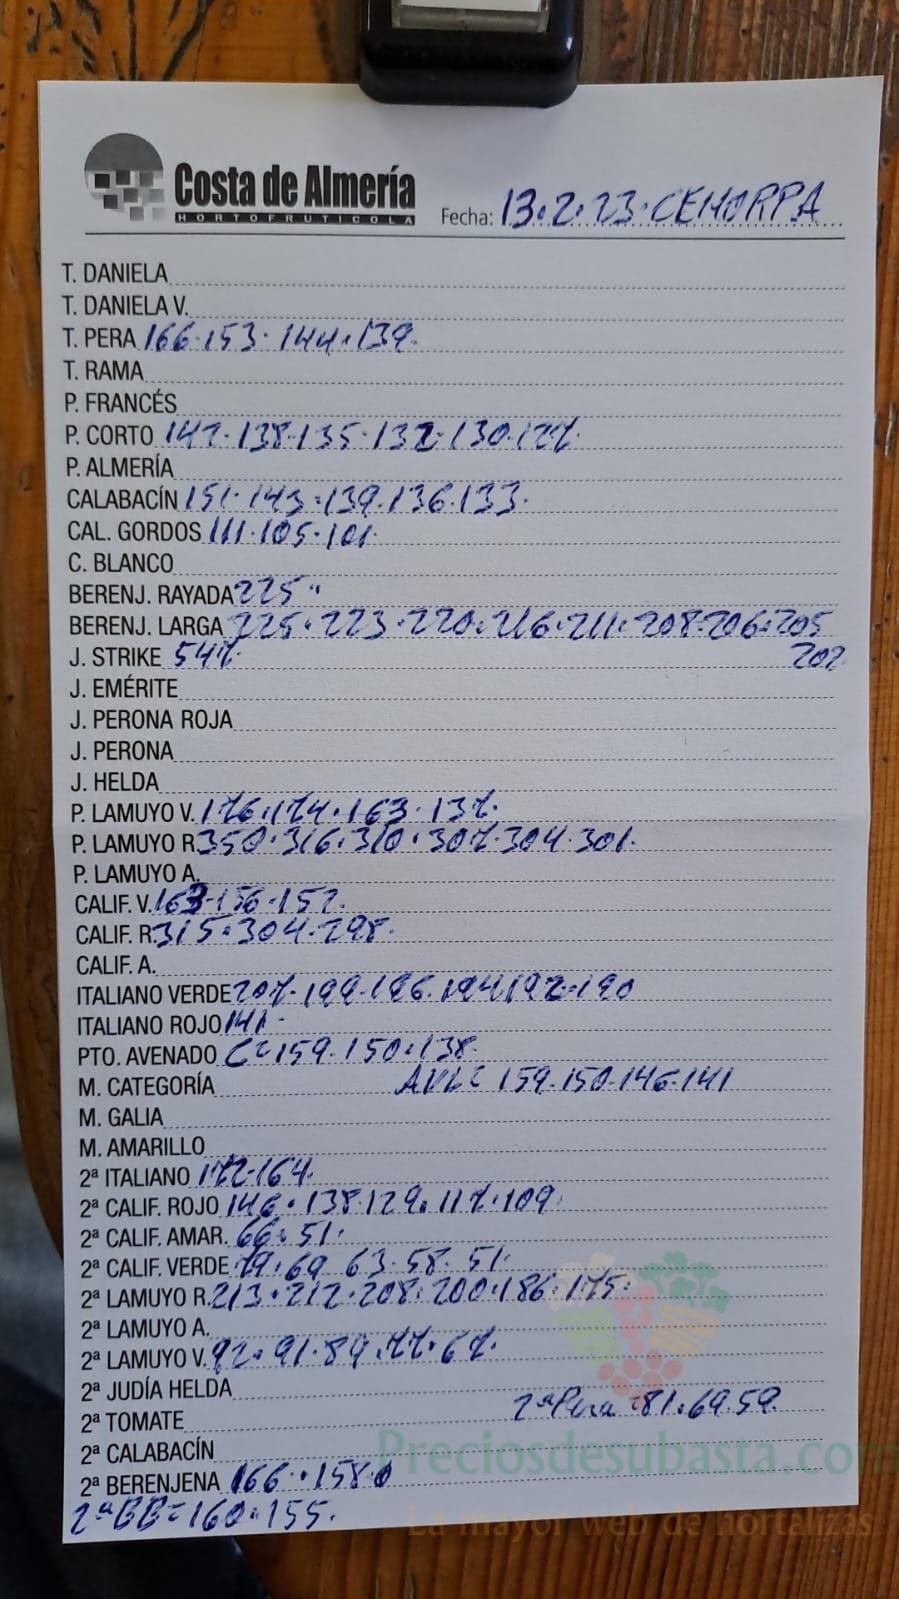 Costa de Almería
HORTOFRUTICOLA
Fecha: 13.2.23.CEHORPA
T. DANIELA
T. DANIELA V.
T. PERA 166.153.144.139.
T. RAMA
P. FRANCÉS
P. CORTO 147.138.135.132.130.127.
P. ALMERÍA
CALABACÍN 151.143.139.136.133.
CAL. GORDOS 111.105.101.
C. BLANCO
BERENJ. RAYADA 225.
BERENJ. LARGA 225.223.220.216.211.208.206.205
J. STRIKE 547. 202
J. EMÉRITE
J. PERONA ROJA
J. PERONA
J. HELDA
P. LAMUYO V. 176.174.163.137.
P. LAMUYO R 350.316.310.307.304.301.
P. LAMUYO A.
CALIF. V. 163.156.152.
CALIF. R. 315.304.298.
CALIF. A.
ITALIANO VERDE 207.199.196.194.192.190
ITALIANO ROJO 141.
PTO. AVENADO C= 159.150.138.
M. CATEGORÍA 159.150.146.141
M. GALIA
M. AMARILLO
2ª ITALIANO 172.164.
2ª CALIF. ROJO 146.138.129.117.109.
2ª CALIF. AMAR. 66.51.
2ª CALIF. VERDE 79.69.63.58.51.
2ª LAMUYO R. 213.212.208.200.186.175.
2ª LAMUYO A.
2ª LAMUYO V. 92.91.84.77.67.
2ª JUDÍA HELDA
2ª TOMATE 2ª Pera 81.69.59.
2ª CALABACÍN
Preciosdesubasta.com
2ª BERENJENA 166.158.
2ªBB=160.155.
La mayor web de hortalizas